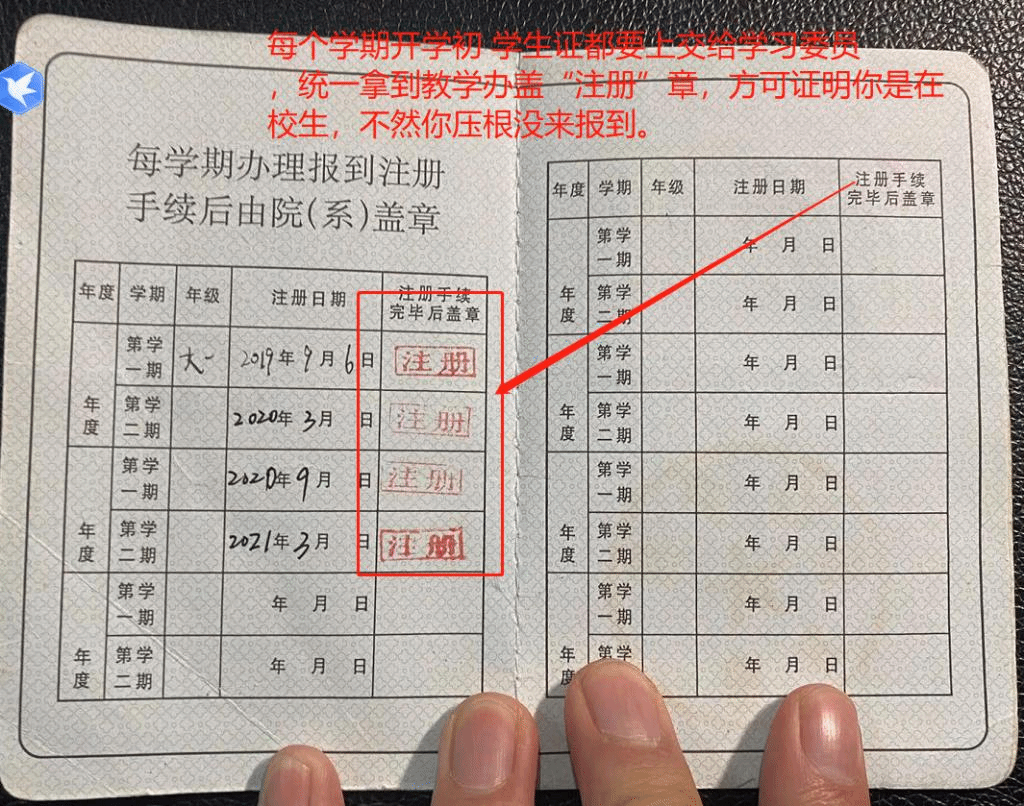 每个学期开学初 学生证都要上交给学习委员
，统一拿到教学办盖“注册”章，方可证明你是在
校生，不然你压根没来报到。
每学期办理报到注册
手续后由院(系)盖章
年度 学期 年级 注册日期 注册手续
完毕后盖章
年度 第学一期 大一 2019年9月6日 注册
第学二期 2020年3月 日 注册
年度 第学一期 2020年9月 日 注册
第学二期 2021年3月 日 注册
年度 第学一期 年 月 日
第学二期 年 月 日
年度 学期 年级 注册日期 注册手续
完毕后盖章
年度 第学一期 年 月 日
第学二期 年 月 日
年度 第学一期 年 月 日
第学二期 年 月 日
年度 第学一期 年 月 日
第学二期 年 月 日
年度 第学一期 年 月 日
第学 年 月 日